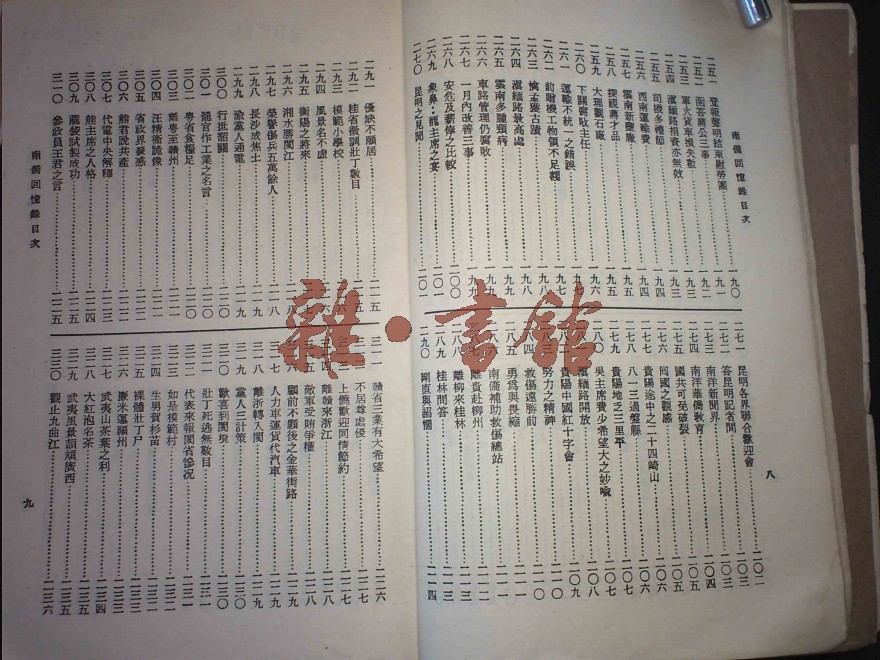 南僑回憶錄目次
二五一 登報聲明結束慰勞團 九〇
二五二 函答蔣公三事 九一
二五三 軍火貨車損失數
二五四 滇緬路捐資亦無效 九三
二五五 司機多禮節
二五六 西南運輸費 九四
二五七 雲南新鹽廠 九五
二五八 探視蔣才品
二五九 大理觀石廠 九六
二六〇 下關腐敗主任
二六一 運輸不統一之錯誤
二六二 前贈機工物領不足額
二六三 擒孟獲古蹟
二六四 滇緬路最高處 九八
二六五 雲南多腫頸病
二六六 車路管理仍腐敗 九九
二六七 一月內改善三事 九九
二六八 安危及薪俸之比較 一〇〇
二六九 象鼻:龍主席之宴
二七〇 昆明之見聞 一〇一
二七一 昆明各界聯合歡迎會 一〇二
二七二 答昆明記者問 一〇三
二七三 南洋新聞界 一〇四
二七四 南洋華僑教育 一〇四
二七五 國共可免破裂 一〇五
二七六 囘國之觀感 一〇五
二七七 貴陽途中之二十四崎山 一〇六
二七八 八一三過盤縣
二七九 貴陽地乏三里平
二八〇 吳主席費少希望大之妙喻 一〇八
二八一 滇緬路開放 一〇九
二八二 貴陽中國紅十字會 一一〇
二八三 努力之精神 一一〇
二八四 救傷遠勝前 一一一
二八五 勇爲與畏縮 一一一
二八六 南僑補助救傷總站
二八七 離貴赴柳州 一一二
二八八 離柳來桂林 一一三
二八九 桂林問答 一一三
二九〇 剛直與謟懦 一一四
八
二九一 優缺不願居 一一五
二九二 桂省徵訓壯丁數目 一一五
二九三 模範小學校
二九四 風景名不虛
二九五 衡陽之將來
二九六 湘水勝閩江
二九七 榮譽傷兵五萬餘人 一一八
二九八 長沙成焦土
二九九 渝黨人通電 一一九
三〇〇 行抵韶關
三〇一 罷官作工業之名言
三〇二 粵省食糧足 一二〇
三〇三 離粵至贛州
三〇四 汪精衛跪像
三〇五 省政界疑惑
三〇六 熊君說共產 一二二
三〇七 代電中央解釋
三〇八 熊主席之人格 一二四
三〇九 罷裝試製成功
三一〇 參政員王君之言 一二五
三一一 贛省三業有大希望 一二六
三一二 不居尊處優 一二七
三一三 上饒歡迎同情節約 一二七
三一四 離贛來浙江 一二八
三一五 敵軍受賄爭權 一二八
三一六 顧前不顧後之金華街路 一二九
三一七 人力車運貨代汽車
三一八 離浙轉入閩 一二九
三一九 黨人三計策 一三〇
三二〇 歡喜到閩境
三二一 壯丁死逃無數目 一三一
三二二 代表來報閩省慘況
三二三 如是模範村
三二四 生男賀杉苗
三二五 裸體壯丁尸
三二六 廉米運福州 一三三
三二七 武夷山茶葉之利 一三四
三二八 大紅泡名茶
三二九 武夷風景頡頏廣西 一三五
三三〇 觀止九曲江 一三六
南僑回憶錄目次
九
雜·書館